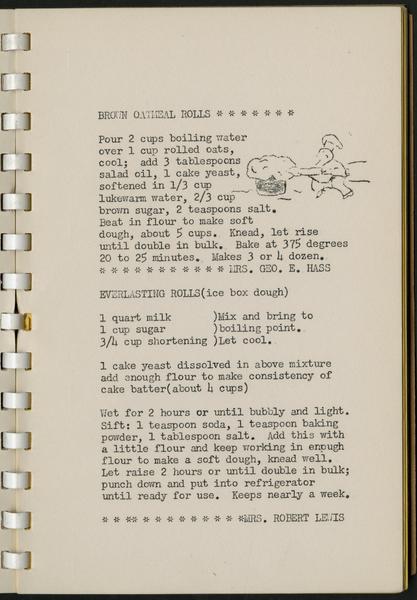 BROWN OATMEAL ROLLS * * * * * * *
Pour 2 cups boiling water
over 1 cup rolled oats,
cool; add 3 tablespoons
salad oil, 1 cake yeast,
softened in 1/3 cup
lukewarm water, 2/3 cup
brown sugar, 2 teaspoons salt.
Beat in flour to make soft
dough, about 5 cups. Knead, let rise
until double in bulk. Bake at 375 degrees
20 to 25 minutes. Makes 3 or 4 dozen.
* * * * * * * * * * * MRS. GEO. E. HASS
EVERLASTING ROLLS(ice box dough)
1 quart milk )Mix and bring to
1 cup sugar )boiling point.
3/4 cup shortening )Let cool.
1 cake yeast dissolved in above mixture
add enough flour to make consistency of
cake batter(about 4 cups)
Wet for 2 hours or until bubbly and light.
Sift: 1 teaspoon soda, 1 teaspoon baking
powder, 1 tablespoon salt. Add this with
a little flour and keep working in enough
flour to make a soft dough, knead well.
Let raise 2 hours or until double in bulk;
punch down and put into refrigerator
until ready for use. Keeps nearly a week.
* * ** * * * * * * * *MRS. ROBERT LEWIS